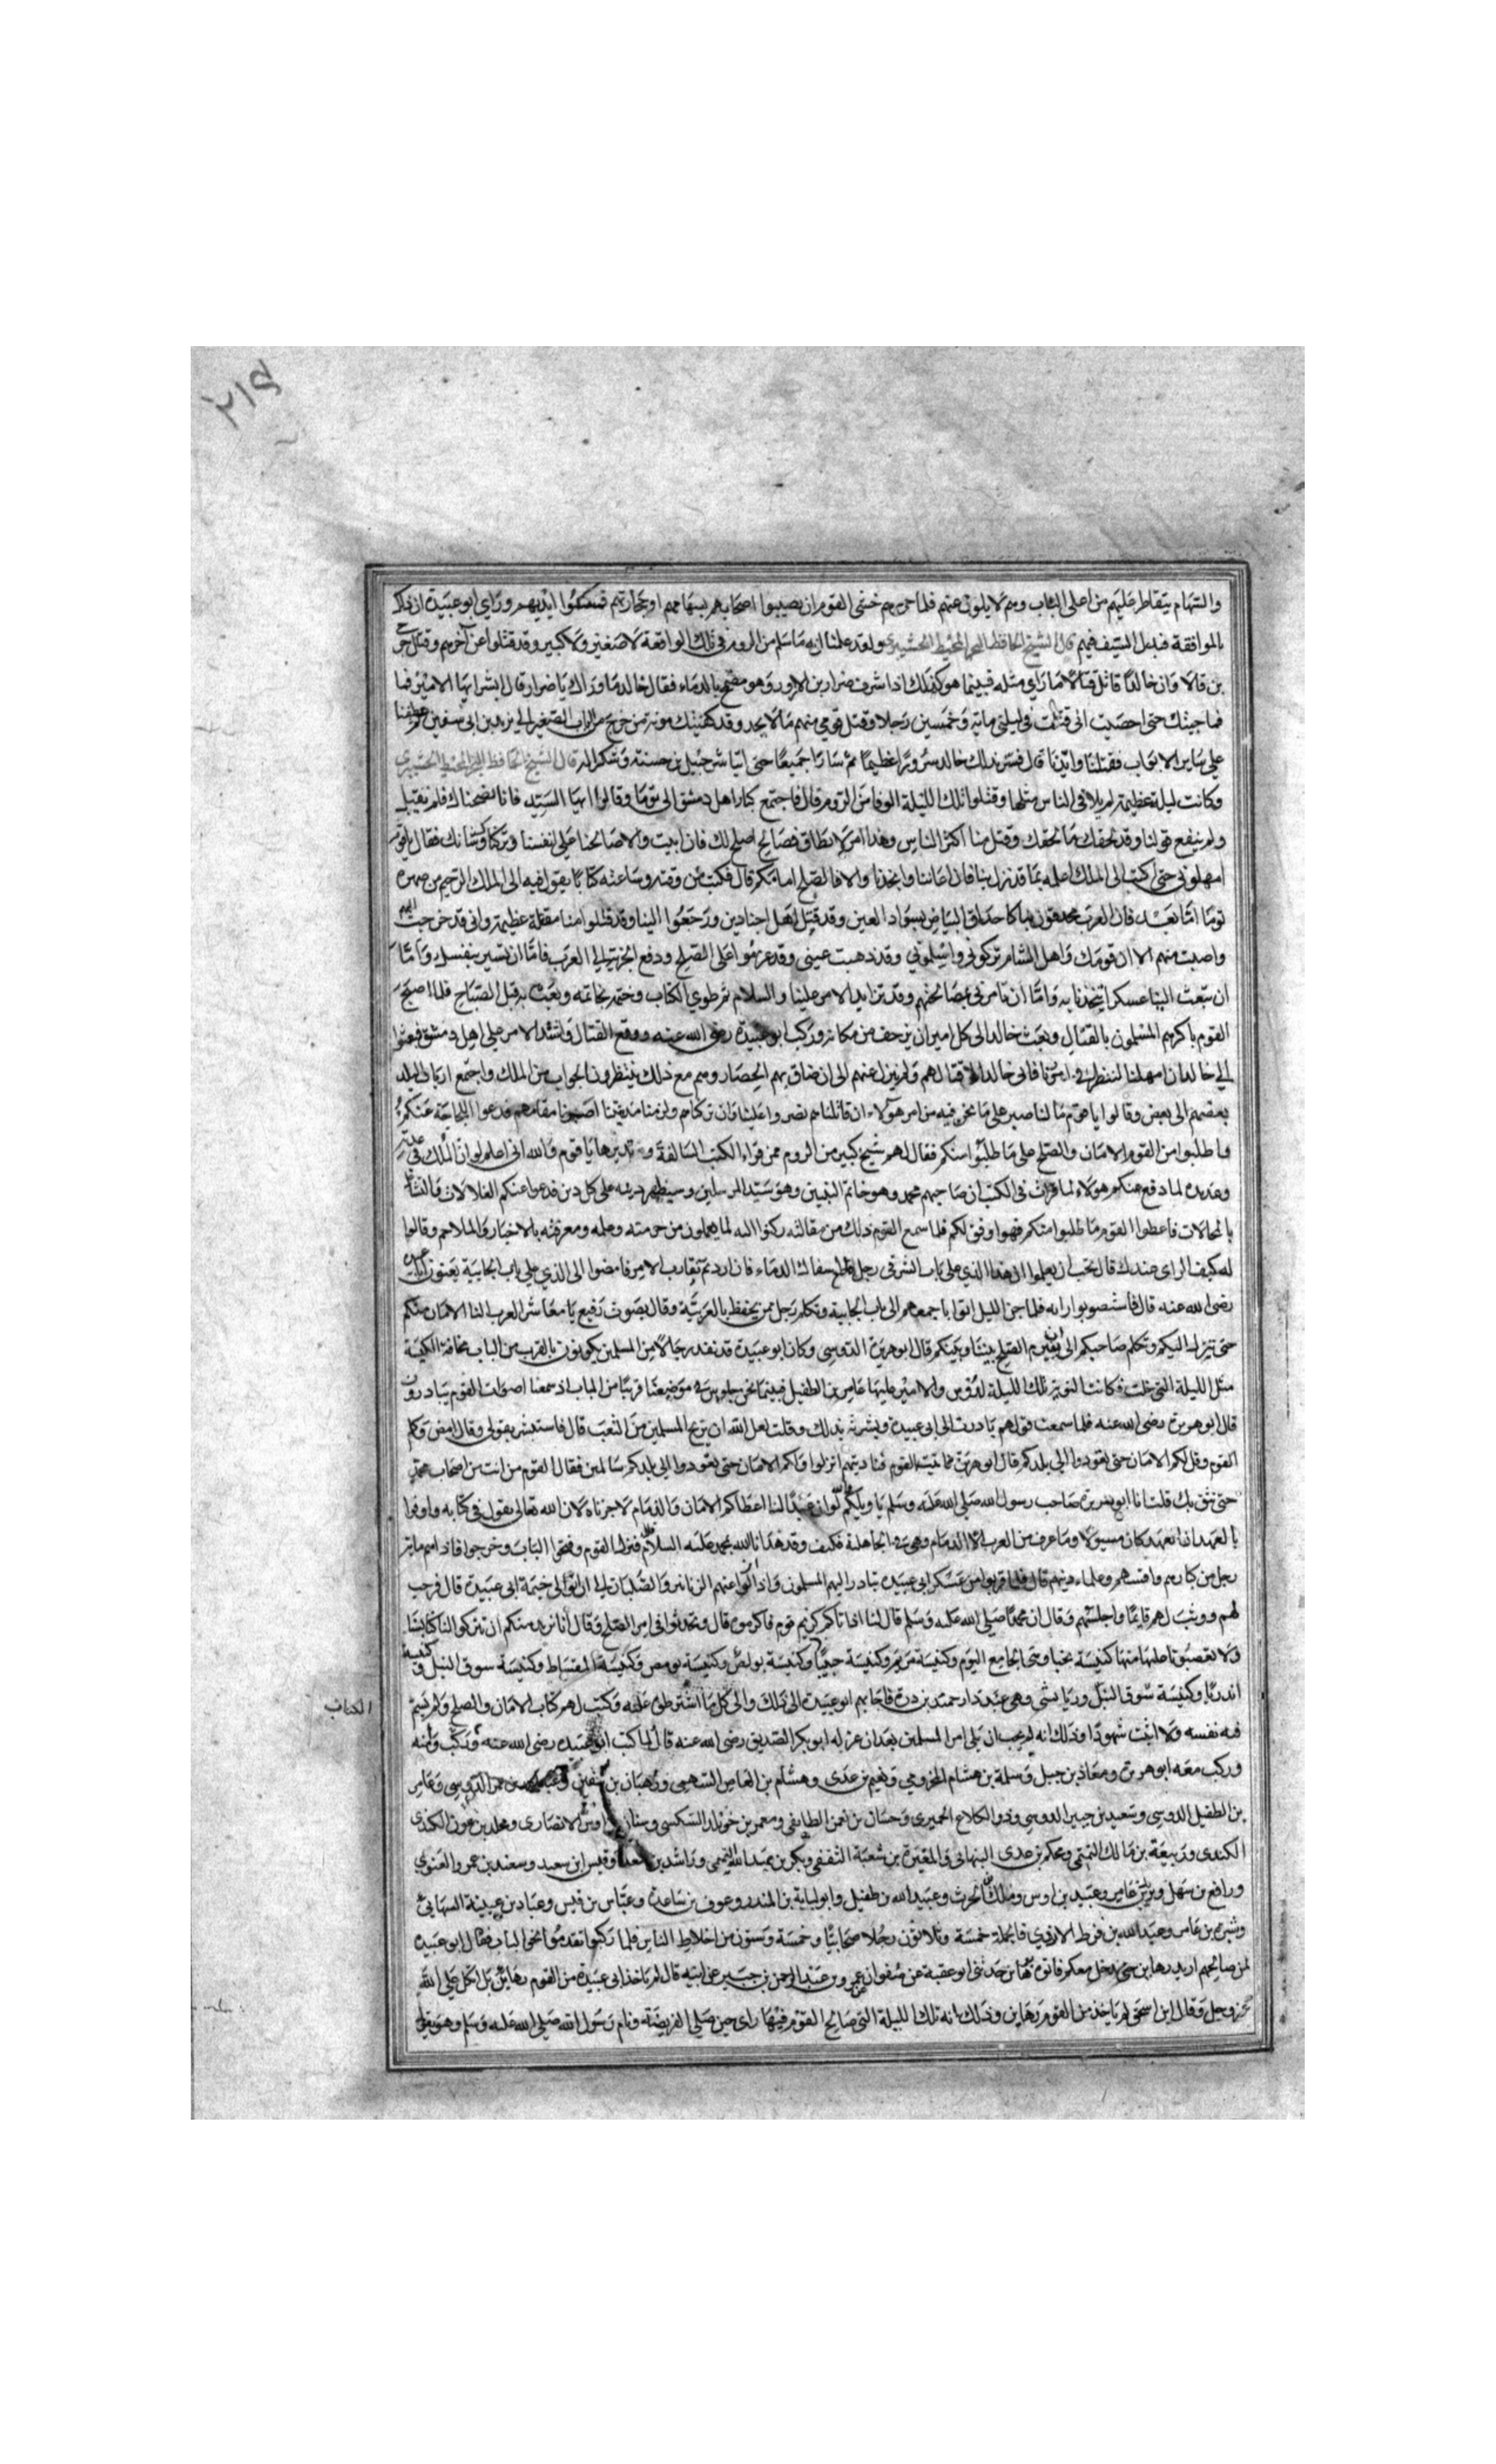 ٢١٩
والسهام يتقاطر عليهم من اعلى الباب وهم لا يلوون عنهم فلما حربهم خشى القوم ان يصيبوا اصحابهم بسهامهم او بحجارتهم فمسكوا ايديهم وراى ابو عبيدة
بالموافقة فبذل السيف فيهم قال الشيخ الحافظ ولقد علمنا انه ما سلم من الروم في تلك الواقعة لا صغير ولا كبير وقد قتلوا عن آخرهم وقتل
بن قالا وان خالدا قاتل قتالا ما راي مثله فبينما هو كذلك اذ اشرف ضرار بن الازور وهو مضمخ بالدماء فقال خالد ما وراك يا ضرار قال ابشر ايها الامير فما
فما جيتك حتى احصيت انى قتلت في ليلتي ماية وخمسين رجلا وقتل قومي منهم ما لا يحد وقد كفيتك مونة من خرج من الباب الصغير الى يزيد بن ابي سفين ثم عطفنا
على ساير الابواب فقتلنا قال فسر بذلك خالد سرورا عظيما ثم سارا جميعا حتى اتيا شرحبيل بن حسنة وشكرا له قال الشيخ الحافظ
وكانت ليلة عظيمة لم يلاقى الناس مثلها وقتلوا تلك الليلة الوفا من الروم قال فاجتمع كبار اهل دمشق الى توما وقالوا ايها السيد فانا نصحناك فلم تقبل
ولم ينفع قولنا وقد لحقك ما لحقك وقتل منا اكثر الناس وهذا امر لا يطاق فصالح اصلح لك فان ابيت والا صالحنا على انفسنا وتركناك وشانك فقال يا قوم
امهلوني حتى اكتب الى الملك اعلمه بما قد نزل بنا فان اعاننا وانجدنا والا فالصلح امامكم قال فكتب من وقته وساعته كتابا يقول فيه الى الملك الرحيم من صهره
توما اما بعد فان العرب محدقون بنا كاحداق البياض بسواد العين وقد قتل اهل اجنادين ورجعوا الينا وقد قتلوا منا مقتلة عظيمة وانى قد خرجت اليهم
واصبت منهم الا ان قومك واهل الشام تركوني وقد ذهبت عيني وقد عزموا على الصلح ودفع الجزية الى العرب فاما ان تسير بنفسك واما
ان تبعث الينا عسكرا ينجدنا به واما ان تامرني بمصالحتهم وقد تزايد الامر علينا والسلام ثم طوي الكتاب وختمه بخاتمه وبعث به قبل الصباح فلما اصبح
القوم باكرهم المسلمون بالقتال وبعث خالد الى كل امير ان يزحف من مكانه وركب ابو عبيدة رضى الله عنه ووقع القتال واشتد الامر على اهل دمشق فبعثوا
الى خالد ان امهلنا لننظر في امرنا فابى خالد الا قتالهم ولم يزل عنهم الى ان ضاق بهم الحصار وهم مع ذلك ينتظرون الجواب من الملك واجتمع ارباب البلد
بعضهم الى بعض وقالوا يا قوم ما لنا صبر على ما نحن فيه من امر هولاء ان قاتلناهم نصروا علينا وان تركناهم ولزمنا مدينتنا فدعوا اللجاجة عنكم
واطلبوا من القوم الامان والصلح على ما طلبوا منكم فقال لهم شيخ كبير من الروم ممن قراء الكتب السالفة يا قوم والله انى اعلم لو ان الملك في
وعديده لما دفع عنكم هولاء لما قرات في الكتب ان صاحبهم محمد وهو خاتم النبيين وهو سيد المرسلين وسيظهر دينه على كل دين فدعوا عنكم
بالمحالات فاعطوا القوم ما طلبوا منكم فهو اوفق لكم فلما سمع القوم ذلك من مقالته ركنوا اليه لما يعلمون من حرمته وعلمه ومعرفته بالاخبار والملاحم وقالوا
له كيف الراى عندك قال يجب ان تعلموا ان هذا الذي على باب الشرقى رجل سفاك الدماء فان اردتم تقارب الامر فامضوا الى الذي على باب الجابية يعنون
رضى الله عنه قال فاستصوبوا رايه فلما جن الليل اتوا باجمعهم الى باب الجابية وتكلم رجل ممن يحفظ بالعربية وقال بصوت رفيع يا معاشر العرب لنا الامان منكم
حتى ننزل اليكم ونكلم صاحبكم الى ان يقيم الصلح بيننا وبينكم قال ابو هريرة الدوسى وكان ابو عبيدة قد نفذ رجالا من المسلمين يكونون بالقرب من الباب مخافة الكبسة
مثل الليلة التى خلت فكانت النوبة تلك الليلة لدوس والامير عليها عامر بن الطفيل فبينما نحن جلوس في موضعنا قريبا من الباب اذ سمعنا اصوات القوم ينادون
قال ابو هريرة رضى الله عنه فلما سمعت قولهم بادرت الى ابى عبيدة وبشرته بذلك وقلت لعل الله ان يريح المسلمين من التعب قال فاستبشر بقولى وقال امض وكلم
القوم وقل لكم الامان حتى تعودوا الى بلدكم قال ابو هريرة فناديتهم انزلوا ولكم الامان حتى تعودوا الى بلدكم سالمين فقال القوم من انت من اصحاب محمد
حتى نثق بك قلت انا ابو هريرة صاحب رسول الله صلى الله عليه وسلم يا ويلكم لو ان عبدا لنا اعطاكم الامان والذمام لاجزناه لان الله تعالى يقول في كتابه واوفوا
بالعهد ان العهد كان مسيولا وما عرف من العرب الا الذمام وهي في الجاهلية فكيف وقد هدانا الله بمحمد عليه السلام فنزل القوم وفتحوا الباب وخرجوا
رجل من كبارهم واقستهم وعلماء دينهم قال فلما قربوا من عسكر ابى عبيدة تبادر اليهم المسلمون وازالوا عنهم الزنانير والصلبان الى ان اتوا الى خيمة ابى عبيدة قال فرحب
لهم ووثب لهم قايما واجلسهم وقال ان محمدا صلى الله عليه وسلم قال لنا اذا اتاكم كريم قوم فاكرموه قال وتحدثوا في امر الصلح وقال انا نريد منكم ان تتركوا لنا كنايسنا
ولا تغصبونا عليها منها كنيسة يحيا وهى الجامع اليوم وكنيسة مريم وكنيسة حنينا وكنيسة بولص وكنيسة وكنيسة المقسلاط وكنيسة سوق النبل وكنيسة
اندريا وكنيسة سوق النبل وهى عند دار حميد بن درة فاجابهم ابو عبيدة الى ذلك والى كل ما اشترطوه عليه وكتب لهم كتاب الامان والصلح ولم يسم
الكتاب
فيه نفسه ولا اثبت شهودا وذلك انه لم يحب ان يلى امر المسلمين بعد ان عزله ابو بكر الصديق رضى الله عنه قال لما كتب ابو عبيدة رضى الله عنه
وركب معه ابو هريرة ومعاذ بن جبل وسلمة بن هشام المخزومي ونعيم بن عدى وهشام بن العاص السهمى بن سفين الدوسى وعامر
بن الطفيل الدوسى وسعيد بن جبير الدوسى وذو الكلاع الحميرى وحسان بن الطايفى ومعمر بن خويلد السكسى وسنان بن اوس الانصارى ومخلد بن عون الكندى
الكندى وربيعة بن مالك التميمى ومحكم بن عدى النبهانى والمغيرة بن شعبة الثقفى وبكر بن عبد الله التميمى وراشد بن سعد وقيس ابن سعيد وسعيد بن عمرو الغنوي
ورافع بن سهل ويزيد بن عامر وعبيد بن اوس ومالك بن الحرث وعبيد الله بن طفيل وابو لبابة بن المنذر وعوف بن ساعدة وعباس بن قيس وعباد بن عيينة النبهانى
وعبد الله بن قرط الازدي فالجملة خمسة وثلاثون رجلا صحابيا وخمسة وستون من اخلاط الناس فلما ركبوا تقدموا نحو الباب فقال ابو عبيدة
اريد رهاين حتى ندخل معكم فاتوه برهاين حدثني ابو عقبة عن صفوان بن عمرو عن عبد الرحمن بن جبير عن ابيه قال لم ياخذ ابى عبيدة من القوم رهاين بل اتكل على الله
عز وجل وقال ابن اسحق لم ياخذ من القوم رهاين وذلك انه تلك الليلة التى صالح القوم فيها راى حين صلى الفريضة ونام رسول الله صلى الله عليه وسلم وهو يقول